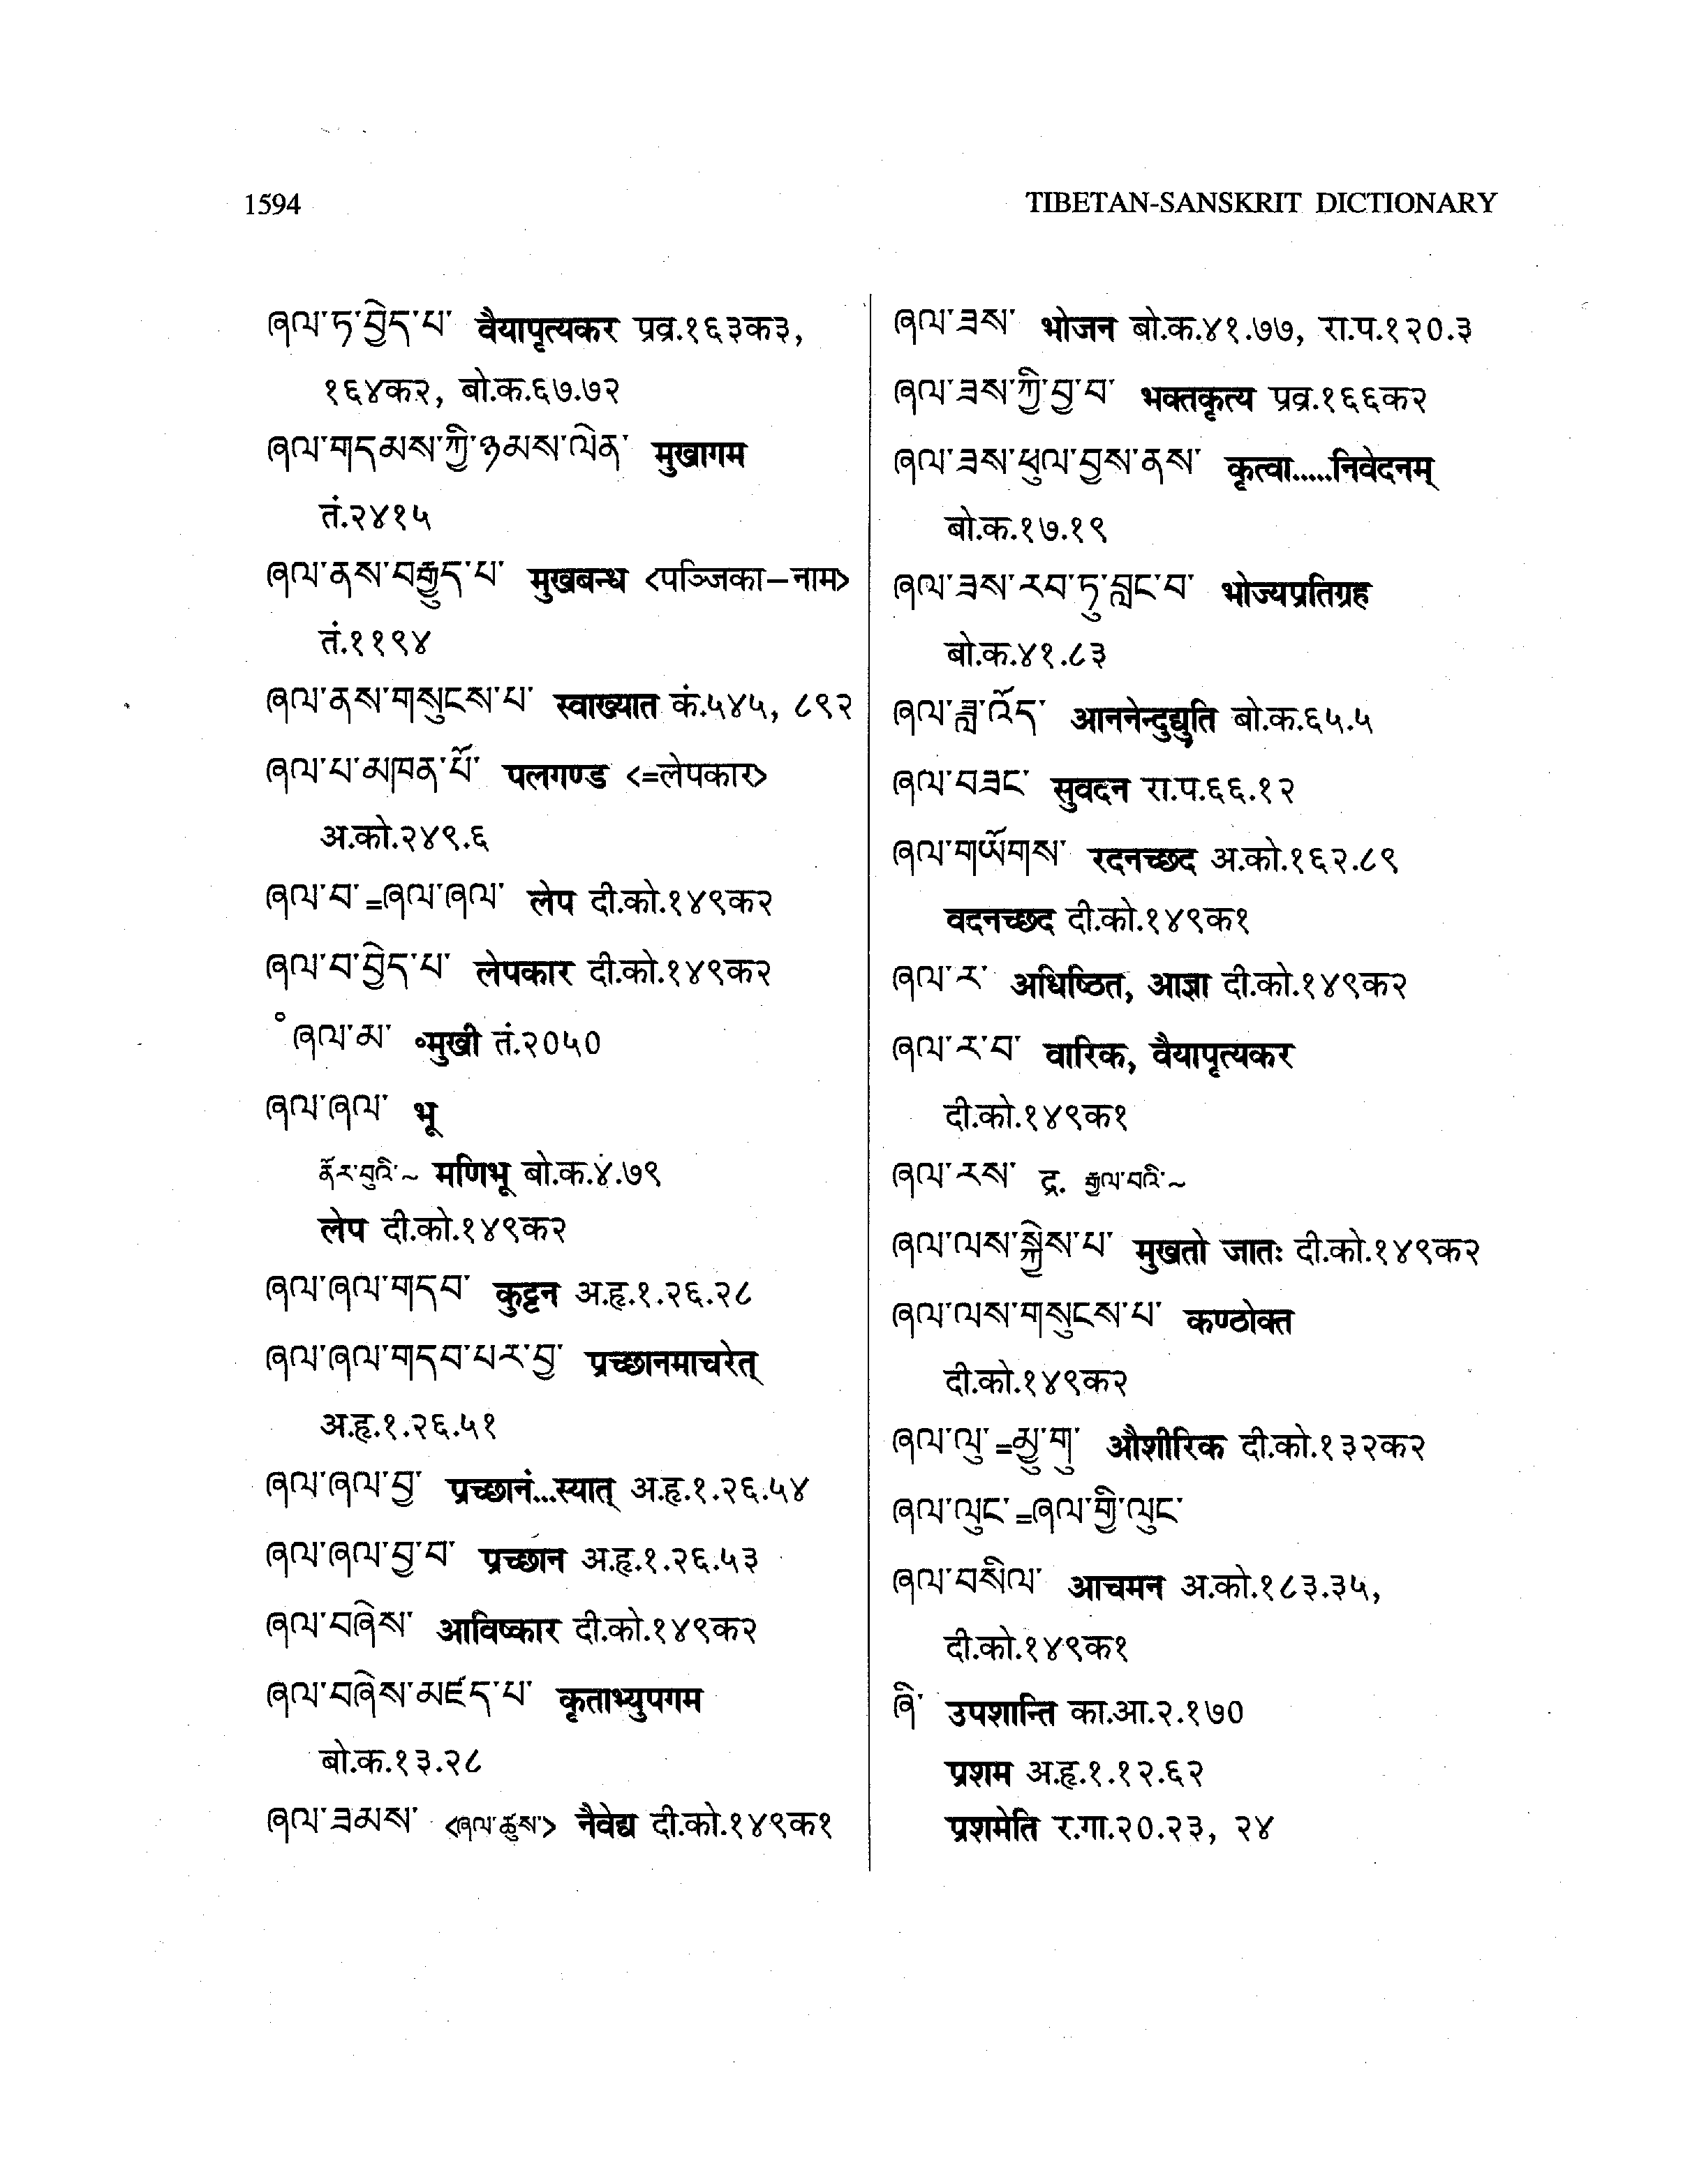 1594
TIBETAN-SANSKRIT DICTIONARY
ཞལ་ཏ་བྱེད་པ་ वैयापृत्यकर प्रव्र.१६३क३,
१६४क२, बो.क.६७.७२
ཞལ་གདམས་ཀྱི་ཉམས་ལེན་ मुखागम
तं.२४१५
ཞལ་ནས་བརྒྱུད་པ་ मुखबन्ध <पञ्जिका–नाम>
तं.११९४
ཞལ་ནས་གསུངས་པ་ स्वाख्यात कं.५४५, ८९२
ཞལ་པ་མཁན་པོ་ पलगण्ड <=लेपकार>
अ.को.२४९.६
ཞལ་བ་=ཞལ་ཞལ་ लेप दी.को.१४९क२
ཞལ་བ་བྱེད་པ་ लेपकार दी.को.१४९क२
॰ཞལ་མ་ ॰मुखी तं.२०५०
ཞལ་ཞལ་ भू
ནོར་བུའི་~ मणिभू बो.क.४.७९
लेप दी.को.१४९क२
ཞལ་ཞལ་གདབ་ कुट्टन अ.हृ.१.२६.२८
ཞལ་ཞལ་གདབ་པར་བྱ་ प्रच्छानमाचरेत्
अ.हृ.१.२६.५१
ཞལ་ཞལ་བྱ་ प्रच्छानं...स्यात् अ.हृ.१.२६.५४
ཞལ་ཞལ་བྱ་བ་ प्रच्छान अ.हृ.१.२६.५३
ཞལ་བཞེས་ आविष्कार दी.को.१४९क२
ཞལ་བཞེས་མཛད་པ་ कृताभ्युपगम
बो.क.१३.२८
ཞལ་ཟམས་ <ཞལ་ཚུས་> नैवेद्य दी.को.१४९क१
ཞལ་ཟས་ भोजन बो.क.४१.७७, रा.प.१२०.३
ཞལ་ཟས་ཀྱི་བྱ་བ་ भक्तकृत्य प्रव्र.१६६क२
ཞལ་ཟས་ཕུལ་བྱས་ནས་ कृत्वा.....निवेदनम्
बो.क.१७.१९
ཞལ་ཟས་རབ་ཏུ་བླང་བ་ भोज्यप्रतिग्रह
बो.क.४१.८३
ཞལ་ཟླ་འོད་ आननेन्दुद्युति बो.क.६५.५
ཞལ་བཟང་ सुवदन रा.प.६६.१२
ཞལ་གཡོགས་ रदनच्छद अ.को.१६२.८९
वदनच्छद दी.को.१४९क१
ཞལ་ར་ अधिष्ठित, आज्ञा दी.को.१४९क२
ཞལ་ར་བ་ वारिक, वैयापृत्यकर
दी.को.१४९क१
ཞལ་རས་ द्र. རྒྱལ་བའི་~
ཞལ་ལས་སྐྱེས་པ་ मुखतो जातः दी.को.१४९क२
ཞལ་ལས་གསུངས་པ་ कण्ठोक्त
दी.को.१४९क२
ཞལ་ལུ་=མྱུ་གུ་ औशीरिक दी.को.१३२क२
ཞལ་ལུང་=ཞལ་གྱི་ལུང་
ཞལ་བསིལ་ आचमन अ.को.१८३.३५,
दी.को.१४९क१
ཞི་ उपशान्ति का.आ.२.१७०
प्रशम अ.हृ.१.१२.६२
प्रशमेति र.गा.२०.२३, २४